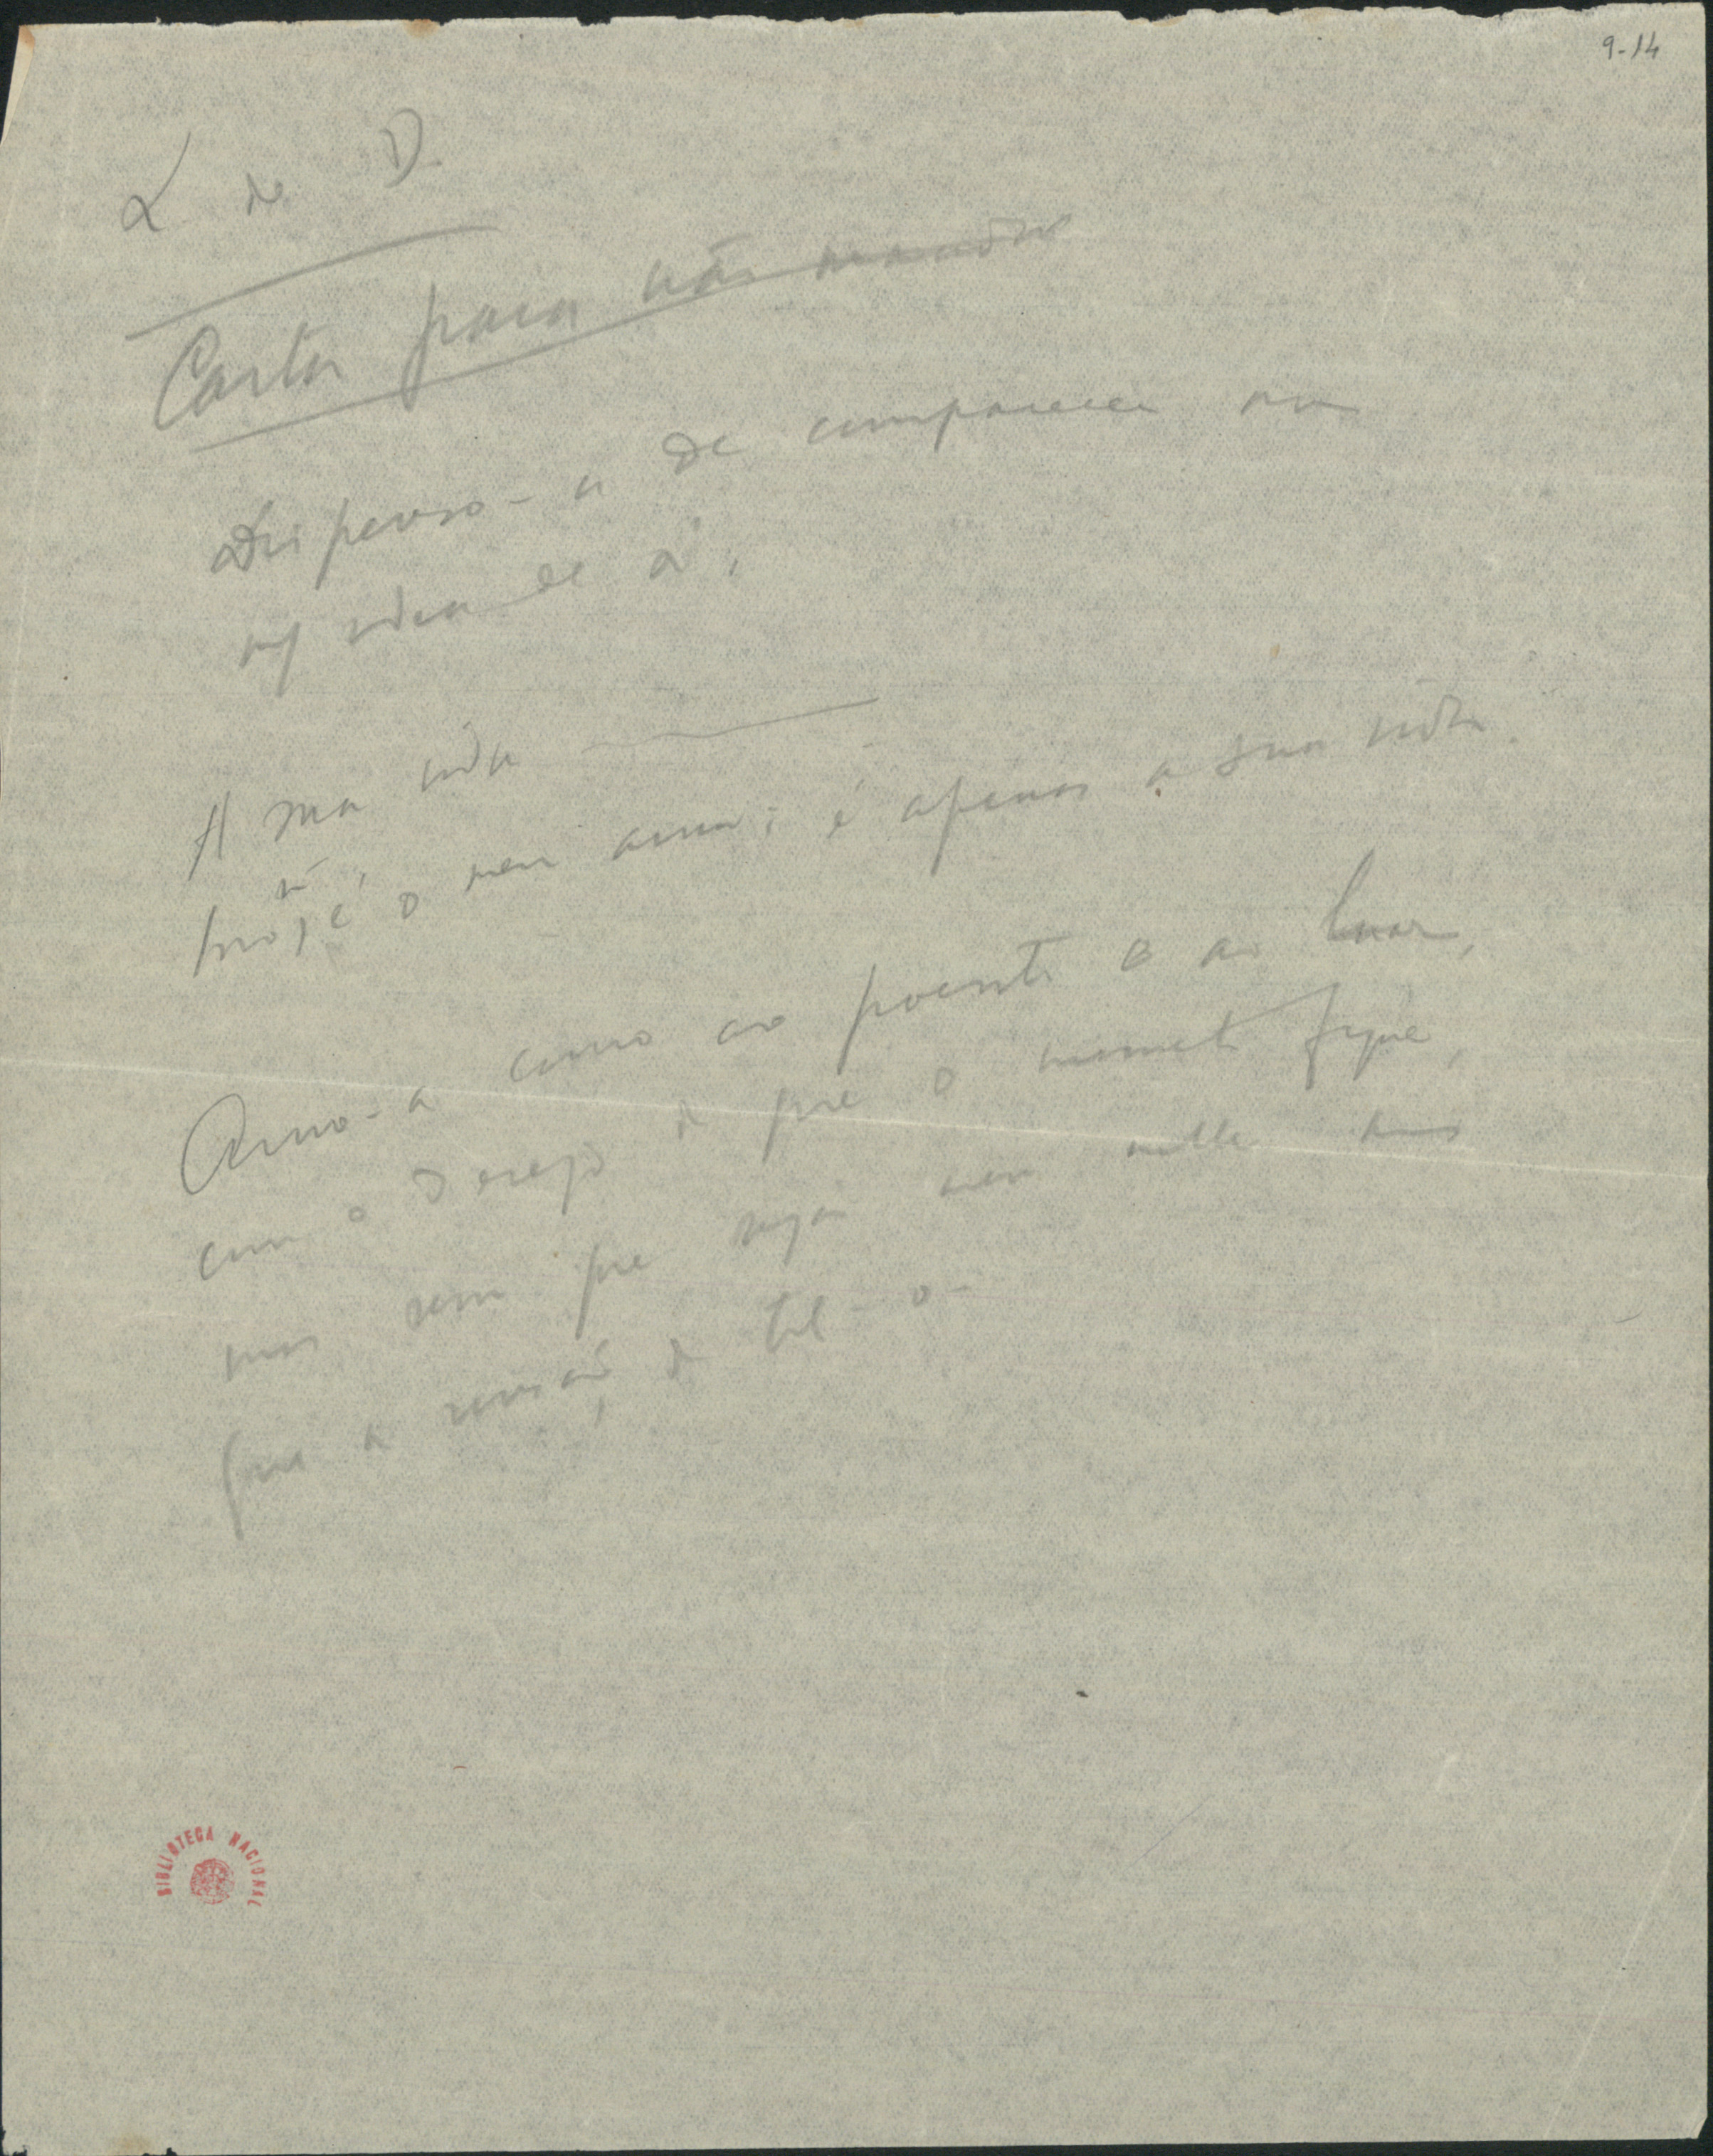 9-14
L do D.
Carta para não mandar
Dispenso-a de comparecer na
m/ idea de si.
A sua vida
Isto não é o meu amor; é apenas a sua vida.
Amo-a como ao poente e ao luar,
com o desejo de que o momento fique,
mas sem que seja meu nelle mais
que a sensação de tel-o.
BIBLIOTECA NACIONAL